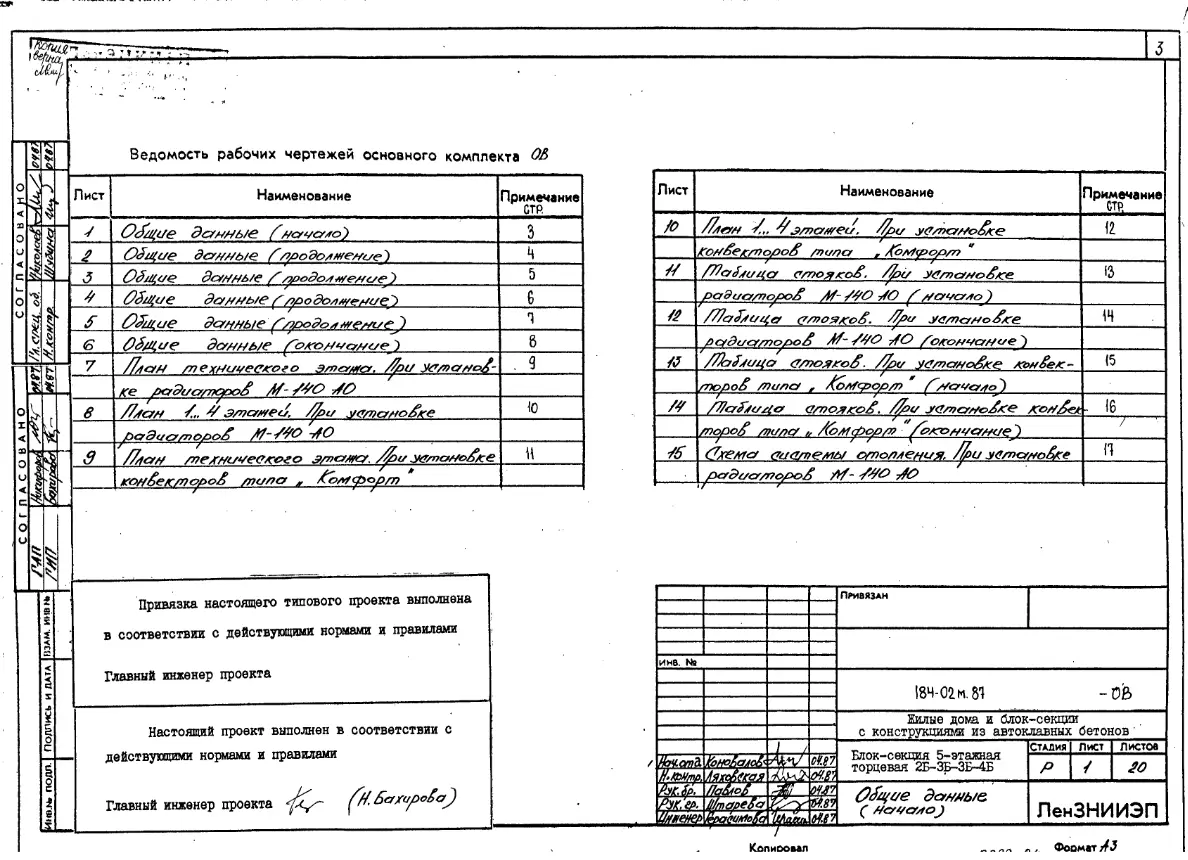 3
Копия
верна
Ведомость рабочих чертежей основного комплекта ОВ
Лист Наименование Примечание стр.
1 Общие данные (начало) 3
2 Общие данные (продолжение) 4
3 Общие данные (продолжение) 5
4 Общие данные (продолжение) 6
5 Общие данные (продолжение) 7
6 Общие данные (окончание) 8
7 План технического этажа. При установ- 9
ке радиаторов М-140 АО
8 План 1... 4 этажей. При установке 10
радиаторов М-140 АО
9 План технического этажа. При установке 11
конвекторов типа „Комфорт"
Лист Наименование Примечание стр.
10 План 1... 4 этажей. При установке 12
конвекторов типа „Комфорт"
11 Таблица стояков. При установке 13
радиаторов М-140 АО (начало)
12 Таблица стояков. При установке 14
радиаторов М-140 АО (окончание)
13 Таблица стояков. При установке конвек- 15
торов типа „Комфорт" (начало)
14 Таблица стояков. При установке конвек- 16
торов типа „Комфорт" (окончание)
15 Схема системы отопления. При установке 17
радиаторов М-140 АО
СОГЛАСОВАНО
Гл. спец. об. Николаев 04.87
Н. контр. Шубина 04.87
СОГЛАСОВАНО
ГАП
ГИП Бахирова
ВЗАМ. ИНВ №
Подпись и дата
Инв.№ подл.
Привязка настоящего типового проекта выполнена
в соответствии с действующими нормами и правилами
Главный инженер проекта
Настоящий проект выполнен в соответствии с
действующими нормами и правилами
Главный инженер проекта (Н.Бахирова)
Привязан
ИНВ. №
184-02м.87 -ОВ
Жилые дома и блок-секции
с конструкциями из автоклавных бетонов
Нач.отд. Коновалов 04.87
Н.контр. Ляховская 04.87
Рук.бр. Павлов 04.87
Рук.гр. Штарева 04.87
Инженер Герасимова 04.87
Блок-секция 5-этажная
торцевая 2Б-3Б-3Б-4Б
Стадия Лист Листов
Р 1 20
Общие данные
(начало)
ЛенЗНИИЭП
Копировал
Формат А3